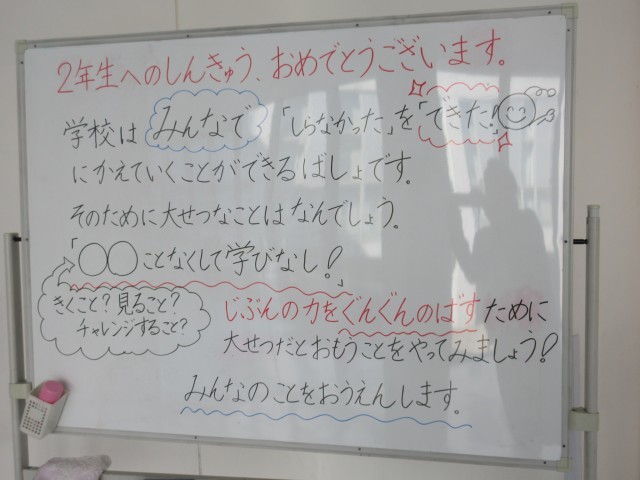 2年生へのしんきゅう、おめでとうございます。
学校はみんなで「しらなかった」を「できた!」
にかえていくことができるばしょです。
そのために大せつなことはなんでしょう。
「○○ことなくして学びなし!」
きくこと?見ること?
チャレンジすること?
じぶんの力をぐんぐんのばすために
大せつだとおもうことをやってみましょう!
みんなのことをおうえんします。